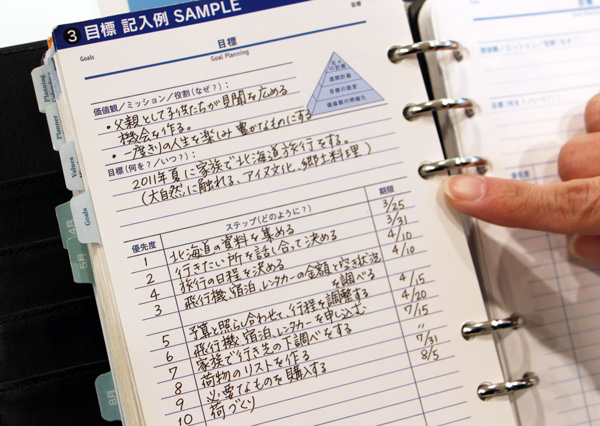 3 目標 記入例 SAMPLE
Goals
目標
Goal Planning
目標
価値観/ミッション/役割(なぜ?):
・父親として子供たちが見聞を広める
機会を作る。
・一度きりの人生を楽しみ豊かなものにする
目標(何を?/いつ?):
2011年夏に家族で北海道旅行をする。
(大自然に触れる、アイヌ文化、郷土料理)
優先度 ステップ(どのように?) 期限
1 北海道の資料を集める 3/25
2 行きたい所を話し合って決める 3/31
4 旅行の日程を決める 4/10
3 飛行機、宿泊、レンタカーの金額と空き状況 4/10
を調べる
5 予算と照らし合わせて行程を調整する 4/15
6 飛行機、宿泊、レンタカーを申し込む 4/20
7 家族で行き先の下調べをする 7/15
8 荷物のリストを作る 〃
9 必要なものを購入する 7/31
10 荷づくり 8/5
日々の計画
週間計画
目標の設定
価値観の明確化
Planner
Values
Goals
4月
5月
8月
価値観/ミッション/役割(なぜ?):
目標(何を?/いつ?):
優先度